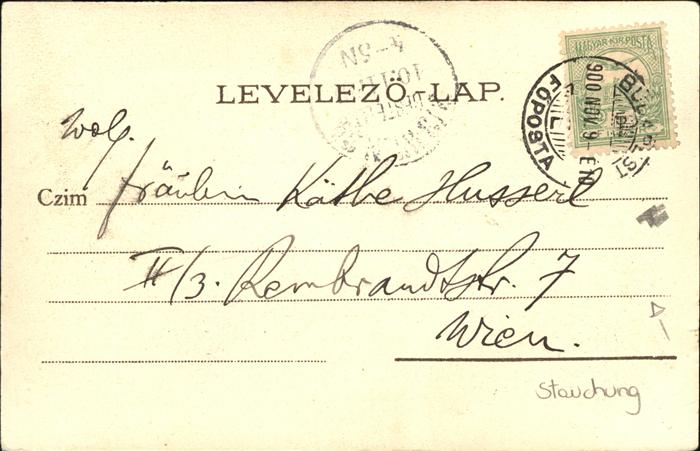 LEVELEZŐ-LAP.
MAGYAR KIR. POSTA
FŐPOSTA
900 NOV. 9
4-5N
Wolg.
Czim Fräulein Käthe Husserl
II/3. Rembrandtstr. 7
Wien.
Stauchung